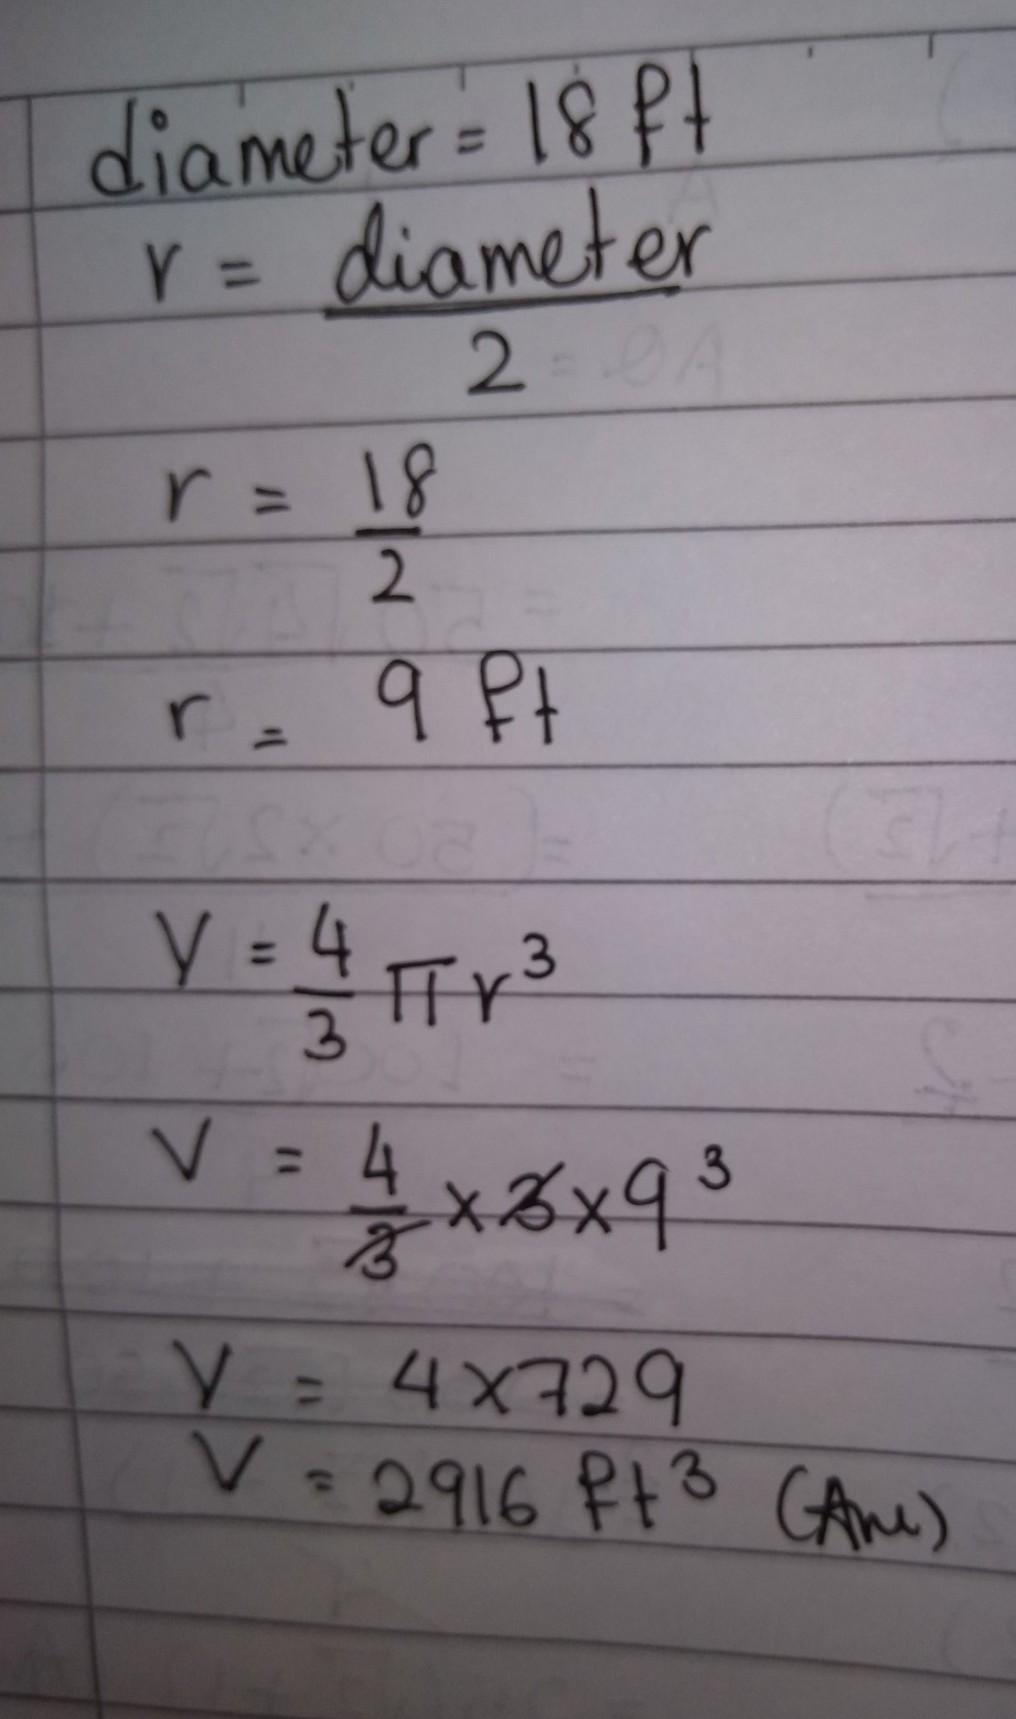 diameter = 18 ft
r = diameter
2
r = 18
2
r = 9 ft
V = 4/3 π r³
V = 4/3 × 3 × 9³
V = 4 × 729
V = 2916 ft³ (Ans)